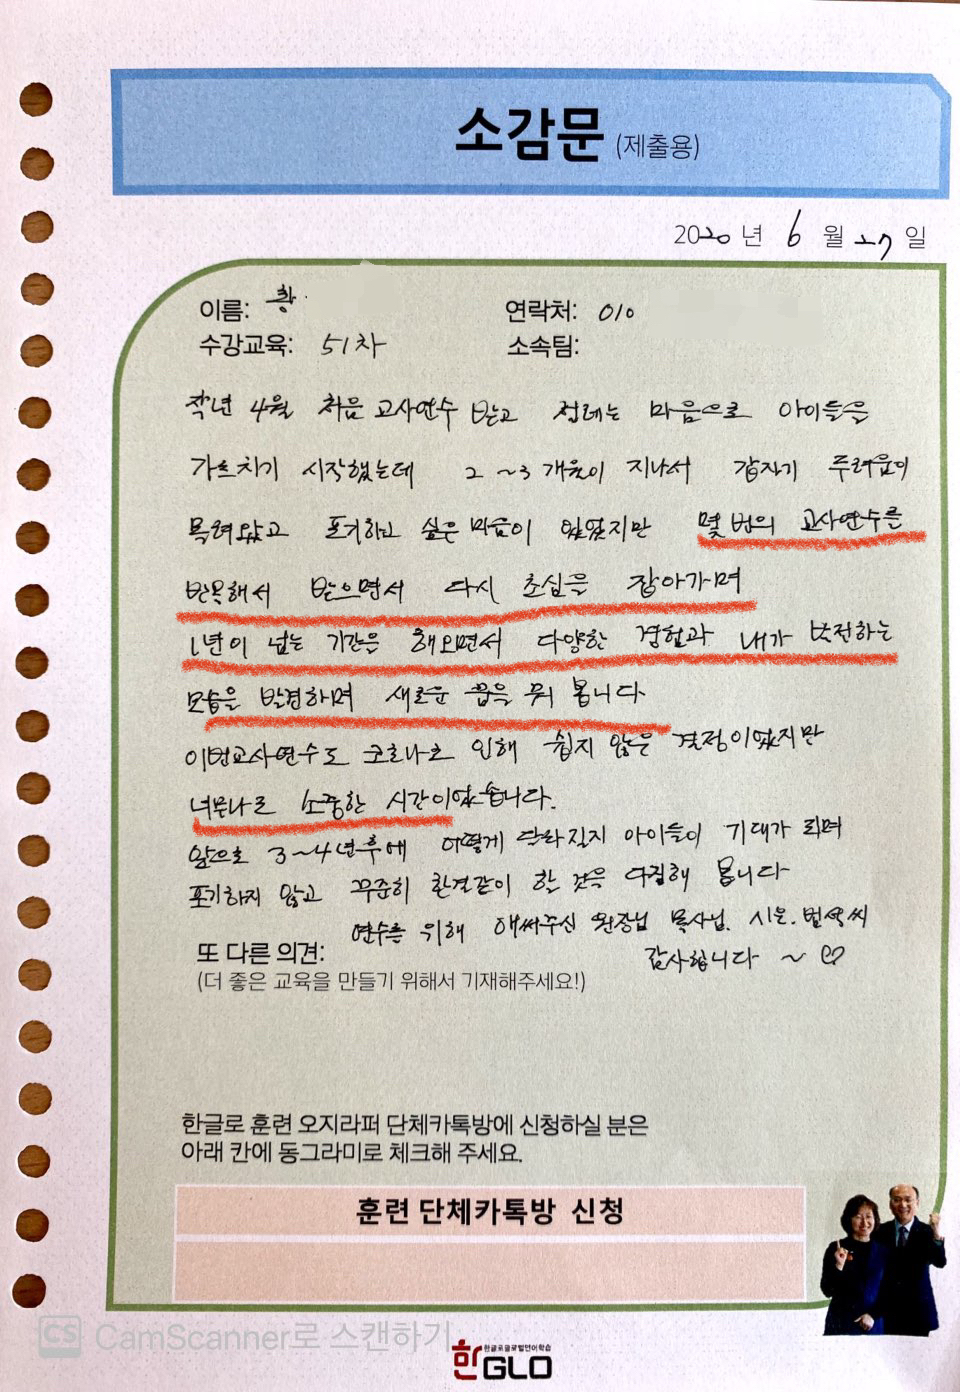 소감문 (제출용)
2020년 6월 27일
이름: 황
연락처: 010
수강교육: 51차
소속팀:
작년 4월 처음 교사연수 받고 설레는 마음으로 아이들을
가르치기 시작했는데 2~3개월이 지나서 갑자기 두려움이
몰려왔고 포기하고 싶은 마음이 있었지만 몇 번의 교사연수를
반복해서 받으면서 다시 초심을 잡아가며
1년이 넘는 기간을 해오면서 다양한 경험과 내가 발전하는
모습을 발견하며 새로운 꿈을 꿔 봅니다
이번교사연수도 코로나로 인해 쉽지 않은 결정이었지만
너무나도 소중한 시간이었습니다.
앞으로 3~4년후에 어떻게 달라질지 아이들이 기대가 되며
포기하지 않고 꾸준히 한결같이 할 것을 다짐해 봅니다
연수를 위해 애써주신 원장님 목사님. 시온.
감사합니다 ~ ♡
또 다른 의견:
(더 좋은 교육을 만들기 위해서 기재해주세요!)
한글로 훈련 오지라퍼 단체카톡방에 신청하실 분은
아래 칸에 동그라미로 체크해 주세요.
훈련 단체카톡방 신청
CS CamScanner로 스캔하기
한글로글로벌언어학습
한GLO